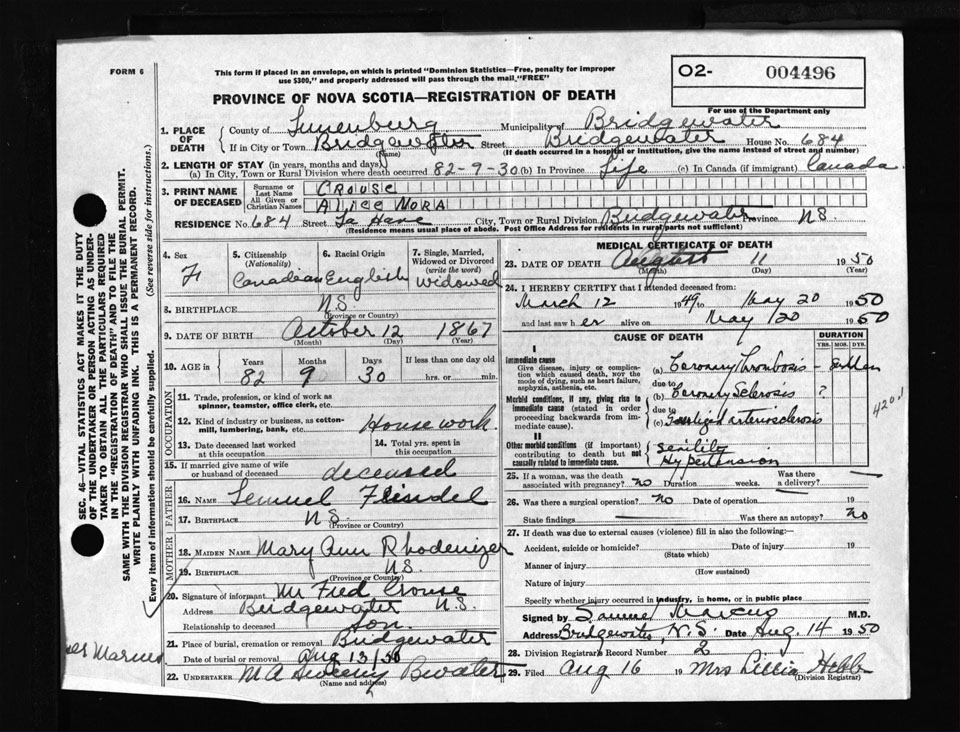 FORM 6
This form if placed in an envelope, on which is printed "Dominion Statistics—Free, penalty for improper
use $300," and properly addressed will pass through the mail "FREE"
O2- 004496
For use of the Department only
PROVINCE OF NOVA SCOTIA—REGISTRATION OF DEATH
1. PLACE OF DEATH
County of Lunenburg Municipality of Bridgewater
If in City or Town Bridgewater Street Bridgewater House No. 684
(Name) (If death occurred in a hospital or institution, give the name instead of street and number)
2. LENGTH OF STAY (in years, months and days)
(a) In City, Town or Rural Division where death occurred 82-9-30 (b) In Province Life (c) In Canada (if immigrant) Canada
3. PRINT NAME OF DECEASED
Surname or Last Name CROUSE
All Given or Christian Names ALICE NORA
RESIDENCE No. 684 Street La Have City, Town or Rural Division Bridgewater Province N.S.
(Residence means usual place of abode. Post Office Address for residents in rural parts not sufficient)
4. Sex F
5. Citizenship (Nationality) Canadian
6. Racial Origin English
7. Single, Married, Widowed or Divorced (write the word) Widowed
8. BIRTHPLACE N.S.
(Province or Country)
9. DATE OF BIRTH October 12 1867
(Month) (Day) (Year)
10. AGE in Years Months Days If less than one day old
82 9 30 hrs. or min.
OCCUPATION
11. Trade, profession or kind of work as spinner, teamster, office clerk, etc.
12. Kind of industry or business, as cotton-mill, lumbering, bank, etc. Housework.
13. Date deceased last worked at this occupation
14. Total yrs. spent in this occupation
15. If married give name of wife or husband of deceased deceased
FATHER
16. NAME Lemuel Feindel
17. BIRTHPLACE N.S.
(Province or Country)
MOTHER
18. MAIDEN NAME Mary Ann Rhodenizer
19. BIRTHPLACE N.S.
(Province or Country)
20. Signature of informant Mr Fred Crouse
Address Bridgewater N.S.
Relationship to deceased Son.
21. Place of burial, cremation or removal Bridgewater
Date of burial or removal Aug 13/50
22. UNDERTAKER M A Sweeny Bwater
(Name and address)
MEDICAL CERTIFICATE OF DEATH
23. DATE OF DEATH August 11 1950
(Month) (Day) (Year)
24. I HEREBY CERTIFY that I attended deceased from:
March 12 1949 to May 20 1950
and last saw her alive on May 20 1950
CAUSE OF DEATH DURATION
YRS. MOS. DYS.
I
Immediate cause
Give disease, injury or complication which caused death, NOT the mode of dying, such as heart failure, asphyxia, asthenia, etc.
(a) Coronary Thrombosis - Sudden
due to
Morbid conditions, if any, giving rise to immediate cause (stated in order proceeding backwards from immediate cause).
(b) Coronary Sclerosis ?
due to
(c) arteriosclerosis
420.1
II
Other morbid conditions (if important) contributing to death but not causally related to immediate cause.
Senility
Hypertension
25. If a woman, was the death associated with pregnancy? no Duration weeks. Was there a delivery?
26. Was there a surgical operation? no Date of operation 19
State findings Was there an autopsy? no
27. If death was due to external causes (violence) fill in also the following:
Accident, suicide or homicide? Date of injury 19
(State which)
Manner of injury
(How sustained)
Nature of injury
Specify whether injury occurred in industry, in home, or in public place
Signed by Samuel Marcus M.D.
Address Bridgewater, N.S. Date Aug. 14 1950
28. Division Registrar's Record Number 2
29. Filed Aug 16 19 Mrs Lillia Hebb
(Division Registrar)
SEC. 46—VITAL STATISTICS ACT MAKES IT THE DUTY
OF THE UNDERTAKER OR PERSON ACTING AS UNDER-
TAKER TO OBTAIN ALL THE PARTICULARS REQUIRED
IN THE "REGISTRATION OF DEATH" AND TO FILE THE
SAME WITH THE DIVISION REGISTRAR WHO SHALL ISSUE THE BURIAL PERMIT.
WRITE PLAINLY WITH UNFADING INK. THIS IS A PERMANENT RECORD.
Every item of information should be carefully supplied. (See reverse side for instructions.)